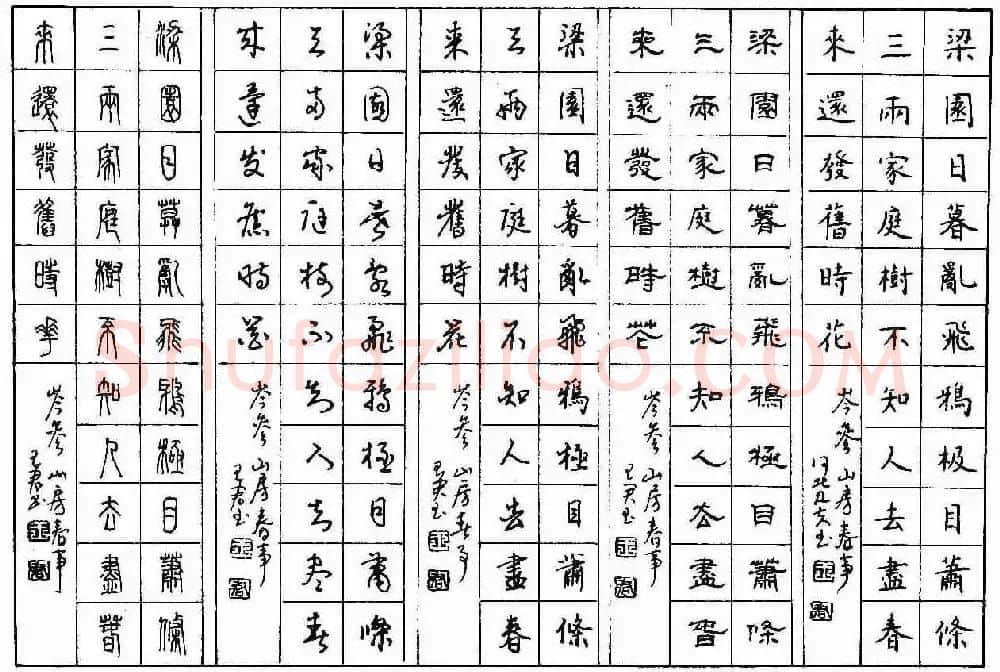 梁園日暮亂飛鴉极目蕭條
三兩家庭樹不知人去盡春
來還發舊時花
岑參 山房春事
梁園日暮亂飛鴉極目蕭條
三兩家庭樹不知人去盡春
來還發舊時花
岑參 山房春事
梁園日暮亂飛鴉極目蕭條
三兩家庭樹不知人去盡春
來還發舊時花
岑參 山房春事
梁園日暮亂飛鴉極目蕭條
三兩家庭樹不知人去盡春
來還發舊時花
岑參 山房春事
梁園日暮亂飛鴉極目蕭條
三兩家庭樹不知人去盡春
來還發舊時華
岑參 山房春事
Shufaziliao.COM